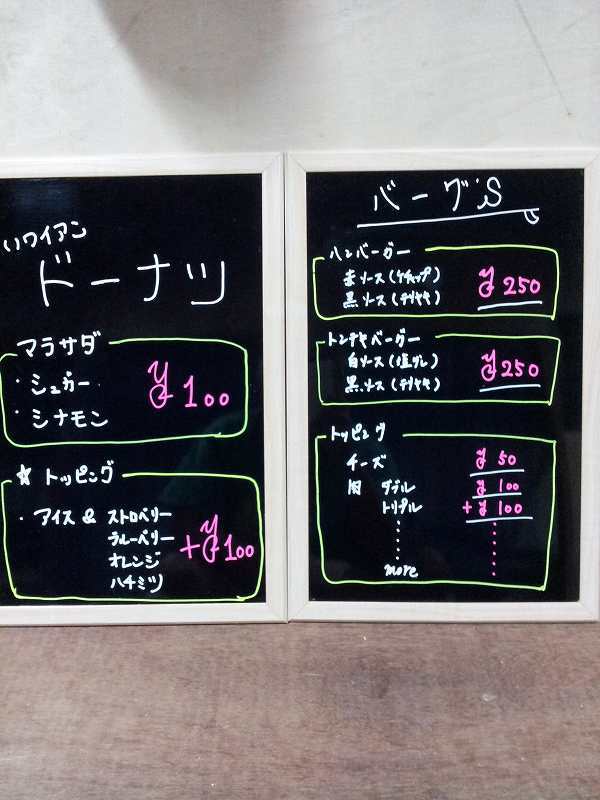 ハワイアン
ドーナツ
マラサダ
・シュガー
・シナモン
¥100
☆ トッピング
・アイス & ストロベリー
ブルーベリー
オレンジ
ハチミツ
+¥100
バーグ's
ハンバーガー
赤ソース(ケチャップ)
黒ソース(テリヤキ)
¥250
トンテキバーガー
白ソース(塩ダレ)
黒ソース(テリヤキ)
¥250
トッピング
チーズ ¥50
肉 ダブル ¥100
トリプル +¥100
more